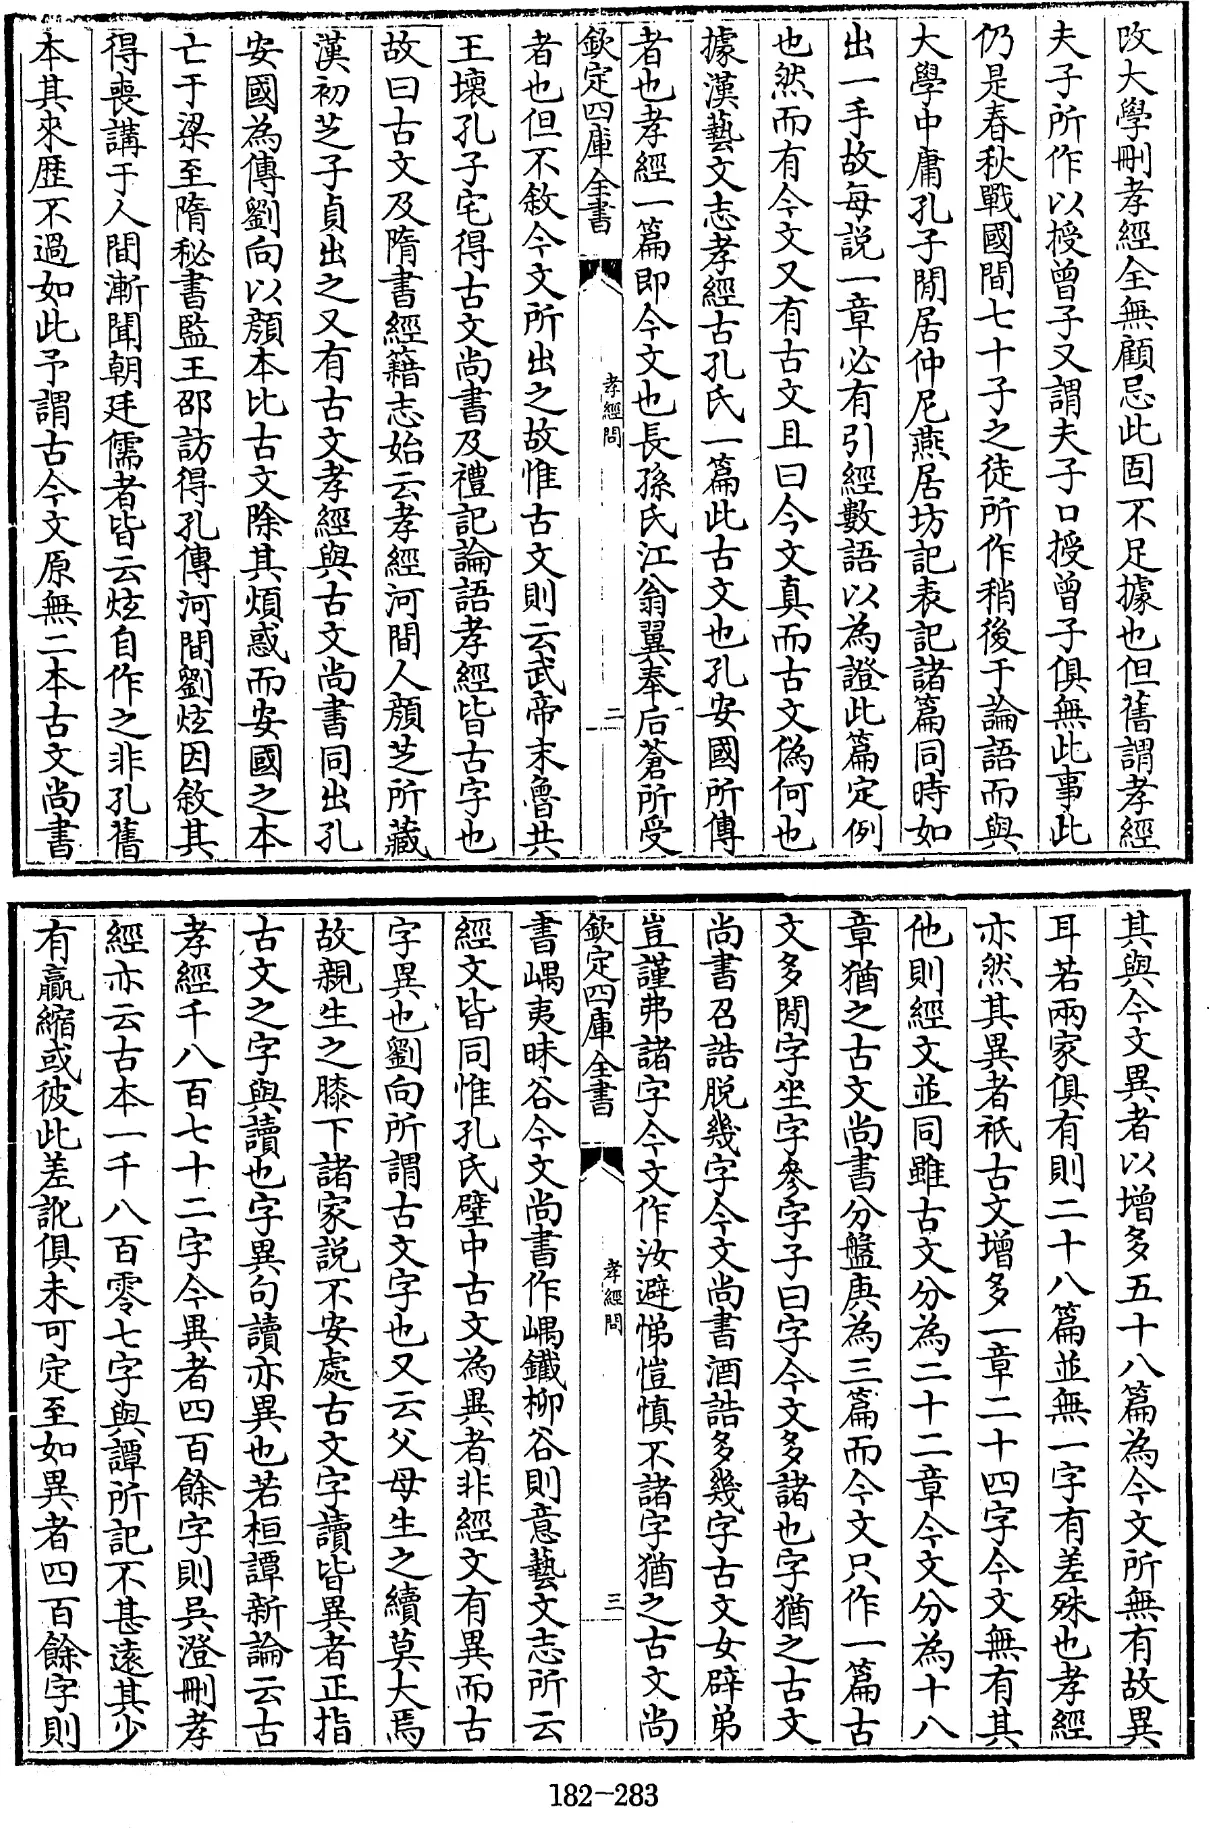 改大學刪孝經全無顧忌此固不足據也但舊謂孝經
夫子所作以授曾子又謂夫子口授曾子俱無此事此
仍是春秋戰國間七十子之徒所作稍後于論語而與
大學中庸孔子閒居仲尼燕居坊記表記諸篇同時如
出一手故每說一章必有引經數語以為證此篇定例
也然而有今文又有古文且曰今文真而古文偽何也
據漢藝文志孝經古孔氏一篇此古文也孔安國所傳
者也孝經一篇即今文也長孫氏江翁翼奉后蒼所受
欽定四庫全書
孝經問
二
者也但不敘今文所出之故惟古文則云武帝末魯共
王壞孔子宅得古文尚書及禮記論語孝經皆古字也
故曰古文及隋書經籍志始云孝經河間人顏芝所藏
漢初芝子貞出之又有古文孝經與古文尚書同出孔
安國為傳劉向以顏本比古文除其煩惑而安國之本
亡于梁至隋秘書監王邵訪得孔傳河間劉炫因敘其
得喪講于人間漸聞朝廷儒者皆云炫自作之非孔舊
本其來歷不過如此予謂古今文原無二本古文尚書
其與今文異者以增多五十八篇為今文所無有故異
耳若兩家俱有則二十八篇並無一字有差殊也孝經
亦然其異者祇古文增多一章二十四字今文無有其
他則經文並同雖古文分為二十二章今文分為十八
章猶之古文尚書分盤庚為三篇而今文只作一篇古
文多閒字坐字參字子曰字今文多諸也字猶之古文
尚書召誥脫幾字今文尚書酒誥多幾字古文女辟弟
豈謹弗諸字今文作汝避悌愷慎不諸字猶之古文尚
欽定四庫全書
孝經問
三
書嵎夷昧谷今文尚書作嵎鐵柳谷則意藝文志所云
經文皆同惟孔氏壁中古文為異者非經文有異而古
字異也劉向所謂古文字也又云父母生之續莫大焉
故親生之膝下諸家說不安處古文字讀皆異者正指
古文之字與讀也字異句讀亦異也若桓譚新論云古
孝經千八百七十二字今異者四百餘字則吳澄刪孝
經亦云古本一千八百零七字與譚所記不甚遠其少
有贏縮或彼此差訛俱未可定至如異者四百餘字則
182-283